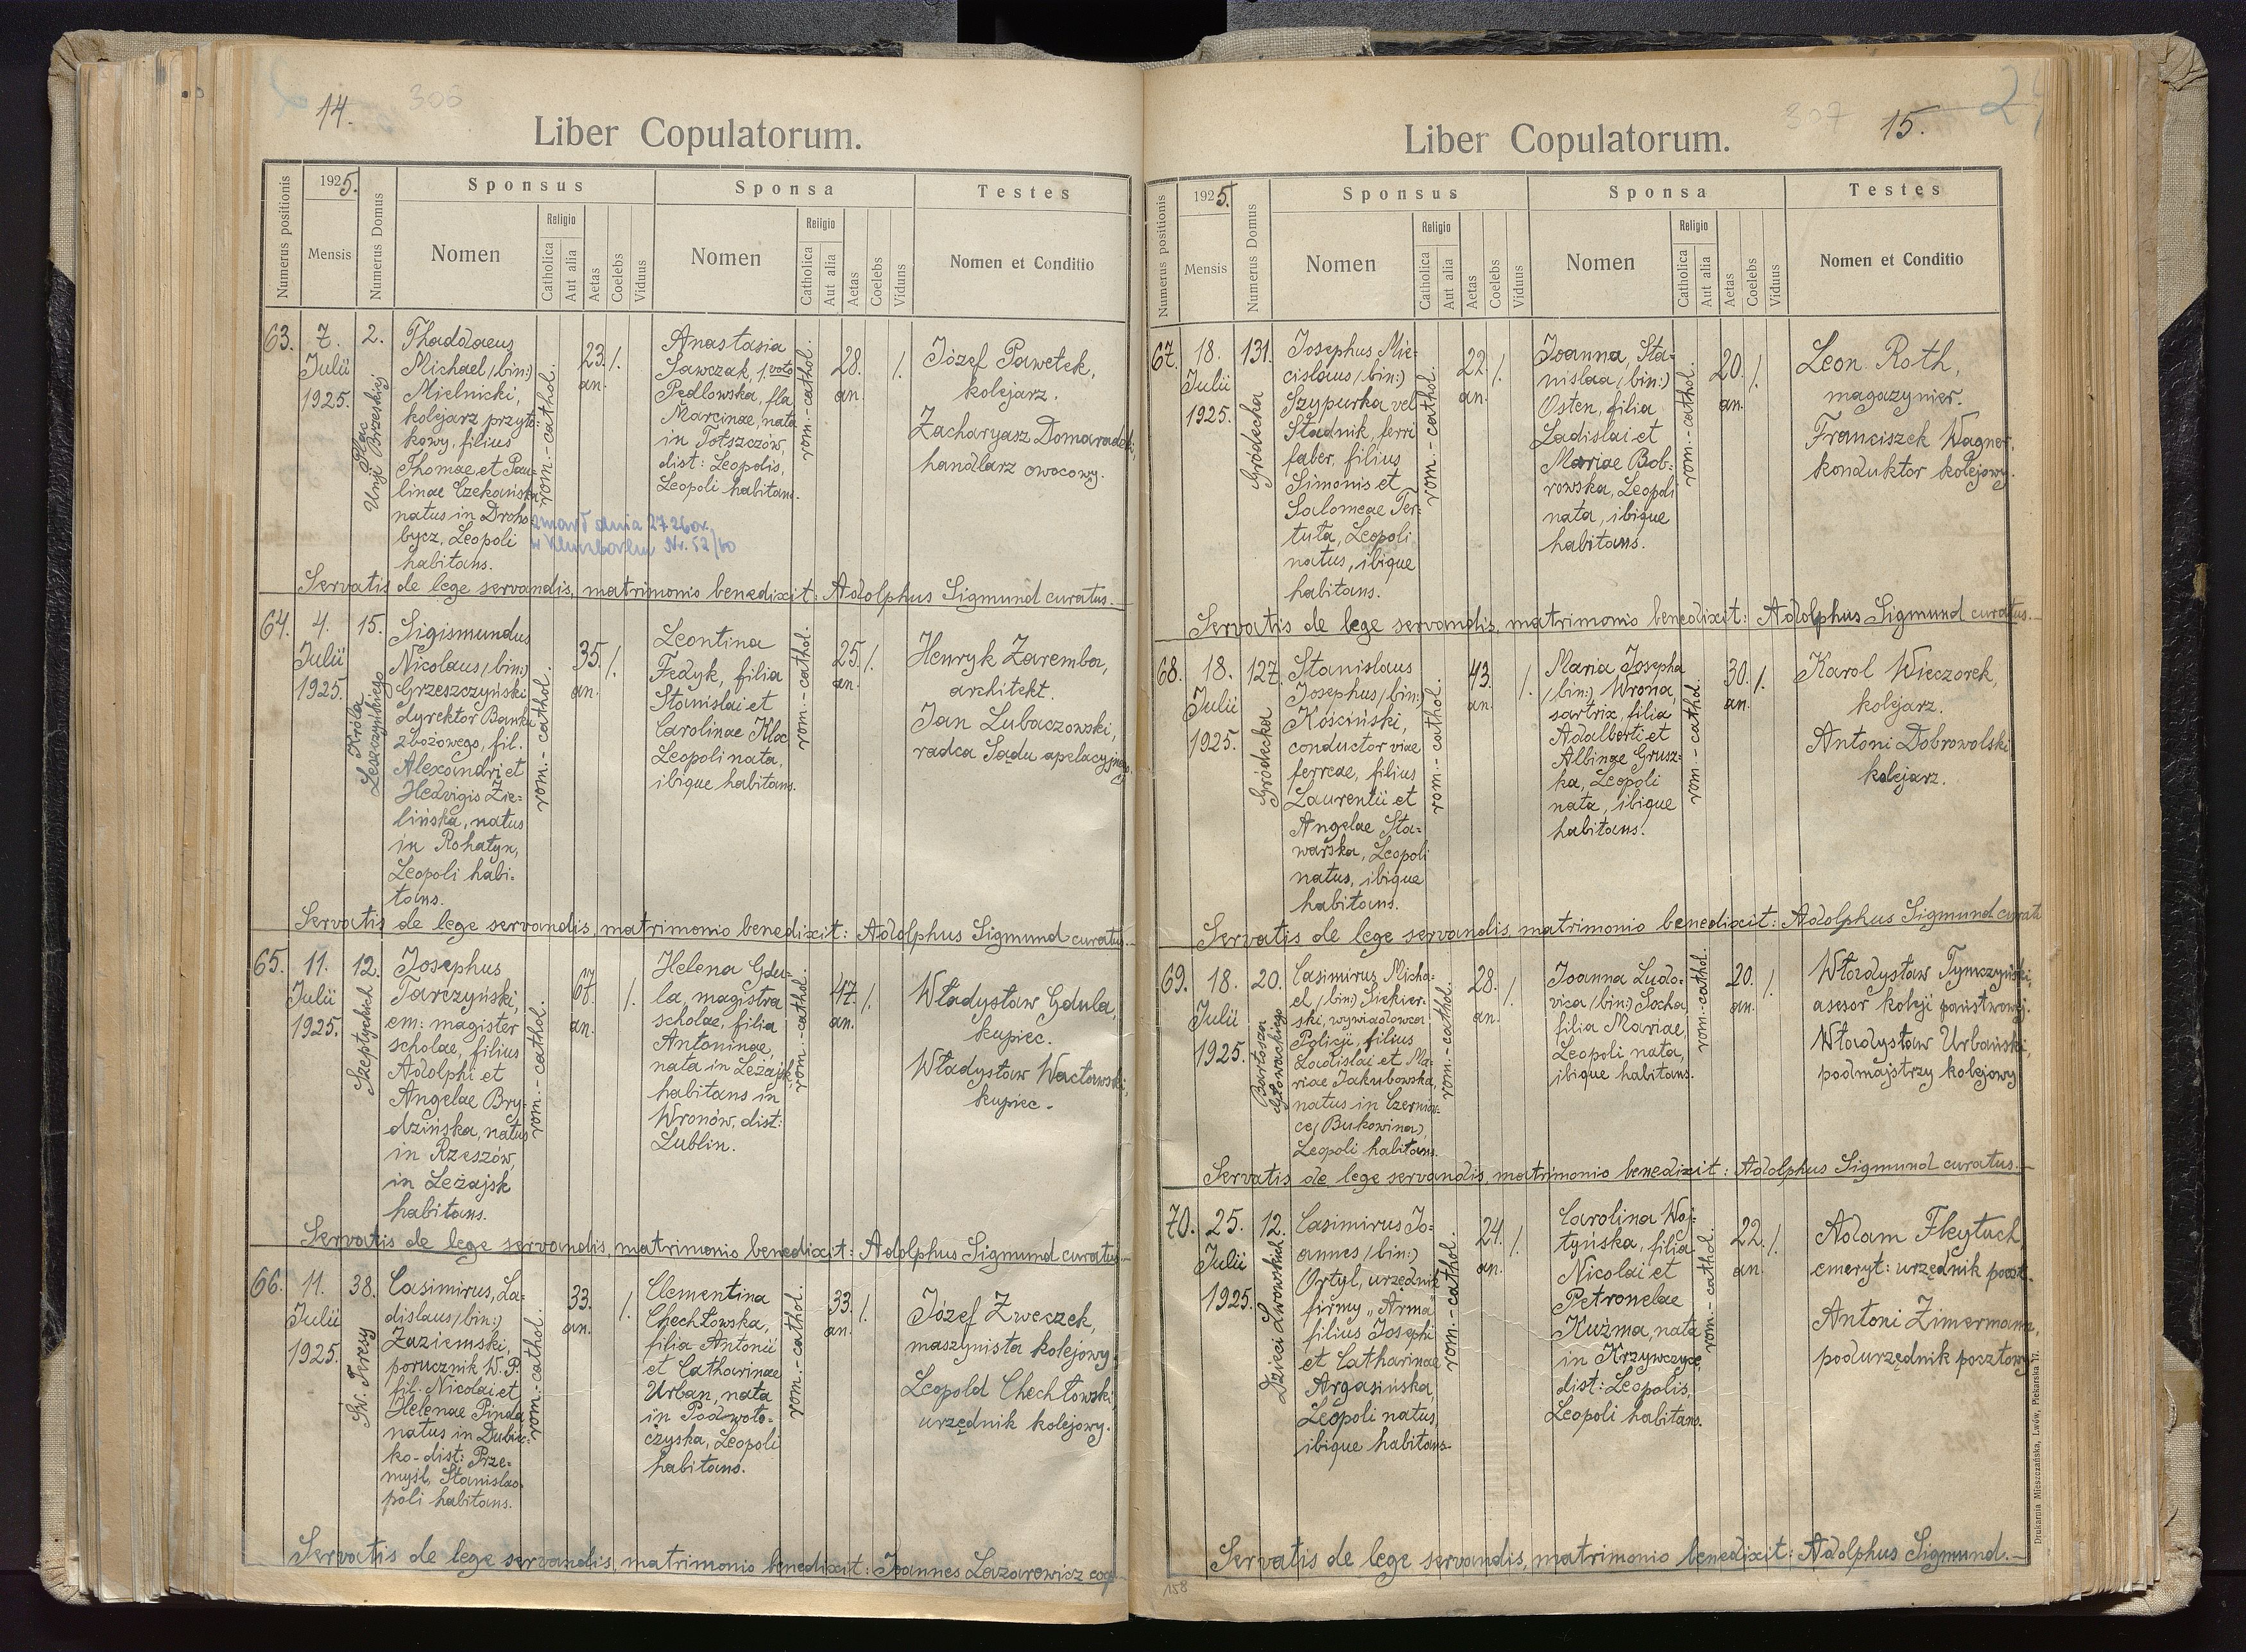 14.
306
Liber Copulatorum.
Numerus positionis
1925.
Mensis
Numerus Domus
Sponsus
Nomen
Religio
Catholica
Aut alia
Aetas
Coelebs
Viduus
Sponsa
Nomen
Religio
Catholica
Aut alia
Aetas
Coelebs
Viduus
Testes
Nomen et Conditio
63.
7.
Julii
1925.
2.
Plac
Unji Brzeskiej
Thaddaeus
Michael (bin:)
Mielnicki,
kolejarz przyto-
kowy, filius
Thomae et Pau-
linae Czekańska
natus in Droho-
bycz, Leopoli
habitans.
rom.-cathol.
23.
an.
/.
Anastasia
Sawczak, 1. voto
Pedlowska, fla
Marcinae, nata
in Tołszczów,
dist: Leopolis,
Leopoli habitans.
rom.-cathol.
28.
an.
/.
Józef Pawetek,
kolejarz.
Zacharyasz Domaradzki,
handlarz owocowy.
zmarł dnia 27
Nr. 52/60
Servatis de lege servandis, matrimonio benedixit: Adolphus Sigmund curatus.
64.
4.
Julii
1925.
15.
Króla
Leszczyńskiego
Sigismundus
Nicolaus (bin:)
Grzeszczyński
dyrektor Banku
zbożowego, fil.
Alexandri et
Hedvigis Zie-
lińska, natus
in Rohatyn,
Leopoli habi-
tans.
rom.-cathol.
35.
an.
/.
Leontina
Fedyk, filia
Stanislai et
Carolinae Kloc
Leopoli nata,
ibique habitans.
rom.-cathol.
25.
an.
/.
Henryk Zaremba,
architekt.
Jan Lubaczowski,
radca Sądu apelacyjnego
Servatis de lege servandis, matrimonio benedixit: Adolphus Sigmund curatus.
65.
11.
Julii
1925.
12.
Szeptyckich
Josephus
Tarczyński,
em: magister
scholae, filius
Adolphi et
Angelae Bry-
dzińska, natus
in Rzeszów,
in Leżajsk
habitans.
rom.-cathol.
67.
an.
/.
Helena Gdu-
la, magistra
scholae, filia
Antoninae,
nata in Leżajsk,
habitans in
Wronów, dist:
Lublin.
rom.-cathol.
47.
an.
/.
Władysław Gdula,
kupiec.
Władysław Wacławski,
kupiec.
Servatis de lege servandis, matrimonio benedixit: Adolphus Sigmund curatus.
66.
11.
Julii
1925.
38.
Św. Teresy
Casimirus, La-
dislaus (bin:)
Zaziemski,
porucznik W. P.
fil: Nicolai et
Helenae Pinda
natus in Dubiec-
ko-dist: Prze-
myśl, Stanislao-
poli habitans.
rom.-cathol.
33.
an.
/.
Clementina
Chechłowska,
filia Antonii
et Catharinae
Urban, nata
in Podwoło-
czyska, Leopoli
habitans.
rom.-cathol.
33.
an.
/.
Józef Zweczek,
maszynista kolejowy.
Leopold Chechłowski
urzędnik kolejowy.
Servatis de lege servandis, matrimonio benedixit: Joannes Lazarewicz coop.
307
15.
Liber Copulatorum.
Numerus positionis
1925.
Mensis
Numerus Domus
Sponsus
Nomen
Religio
Catholica
Aut alia
Aetas
Coelebs
Viduus
Sponsa
Nomen
Religio
Catholica
Aut alia
Aetas
Coelebs
Viduus
Testes
Nomen et Conditio
67.
18.
Julii
1925.
131.
Gródecka
Josephus Mie-
cislaus (bin:)
Szypurka vel
Stadnik, ferri
faber, filius
Simonis et
Salomeae Ter-
tuta, Leopoli
natus, ibique
habitans.
rom.-cathol.
22.
an.
/.
Joanna, Sta-
nislaa (bin:)
Osten, filia
Ladislai et
Mariae Bob-
rowska, Leopoli
nata, ibique
habitans.
rom.-cathol.
20.
an.
/.
Leon Roth,
magazynier.
Franciszek Wagner,
konduktor kolejowy.
Servatis de lege servandis, matrimonio benedixit: Adolphus Sigmund curatus.
68.
18.
Julii
1925.
127.
Gródecka
Stanislaus
Josephus (bin:)
Kościński,
conductor viae
ferreae, filius
Laurentii et
Angelae Sta-
warska, Leopoli
natus, ibique
habitans.
rom.-cathol.
43.
an.
/.
Maria Josepha
(bin:) Wrona,
sartrix, filia
Adalberti et
Albinae Grusz-
ka, Leopoli
nata, ibique
habitans.
rom.-cathol.
30.
an.
/.
Karol Wieczorek,
kolejarz.
Antoni Dobrowolski
kolejarz.
Servatis de lege servandis, matrimonio benedixit: Adolphus Sigmund curatus
69.
18.
Julii
1925.
20.
Bartosza
Głowackiego
Casimirus Micha-
el (bin:) Siekier-
ski, wywiadowca
Policji, filius
Ladislai et Ma-
riae Jakubowska,
natus in Czernio-
ce (Bukowina),
Leopoli habitans.
rom.-cathol.
28.
an.
/.
Joanna Ludo-
vica (bin:) Socha,
filia Mariae,
Leopoli nata,
ibique habitans.
rom.-cathol.
20.
an.
/.
Władysław Tymczyński,
asesor koleji państwowej.
Władysław Urbański,
podmajstrzy kolejowy
Servatis de lege servandis, matrimonio benedixit: Adolphus Sigmund curatus.
70.
25.
Julii
1925.
12.
Dzieci Lwowskich
Casimirus Jo-
annes (bin:)
Ortyl, urzędnik
firmy „Arma"
filius Josephi
et Catharinae
Argasińska,
Leopoli natus,
ibique habitans.
rom.-cathol.
24.
an.
/.
Carolina Woj-
tyńska, filia
Nicolai et
Petronelae
Kuźma, nata
in Krzywczyce,
dist: Leopolis,
Leopoli habitans.
rom.-cathol.
22.
an.
/.
Adam Flejtuch,
emeryt: urzędnik poczt.
Antoni Zimermann,
podurzędnik pocztowy
Servatis de lege servandis, matrimonio benedixit: Adolphus Sigmund.
158
Drukarnia Mieszczańska, Lwów, Piekarska 17.